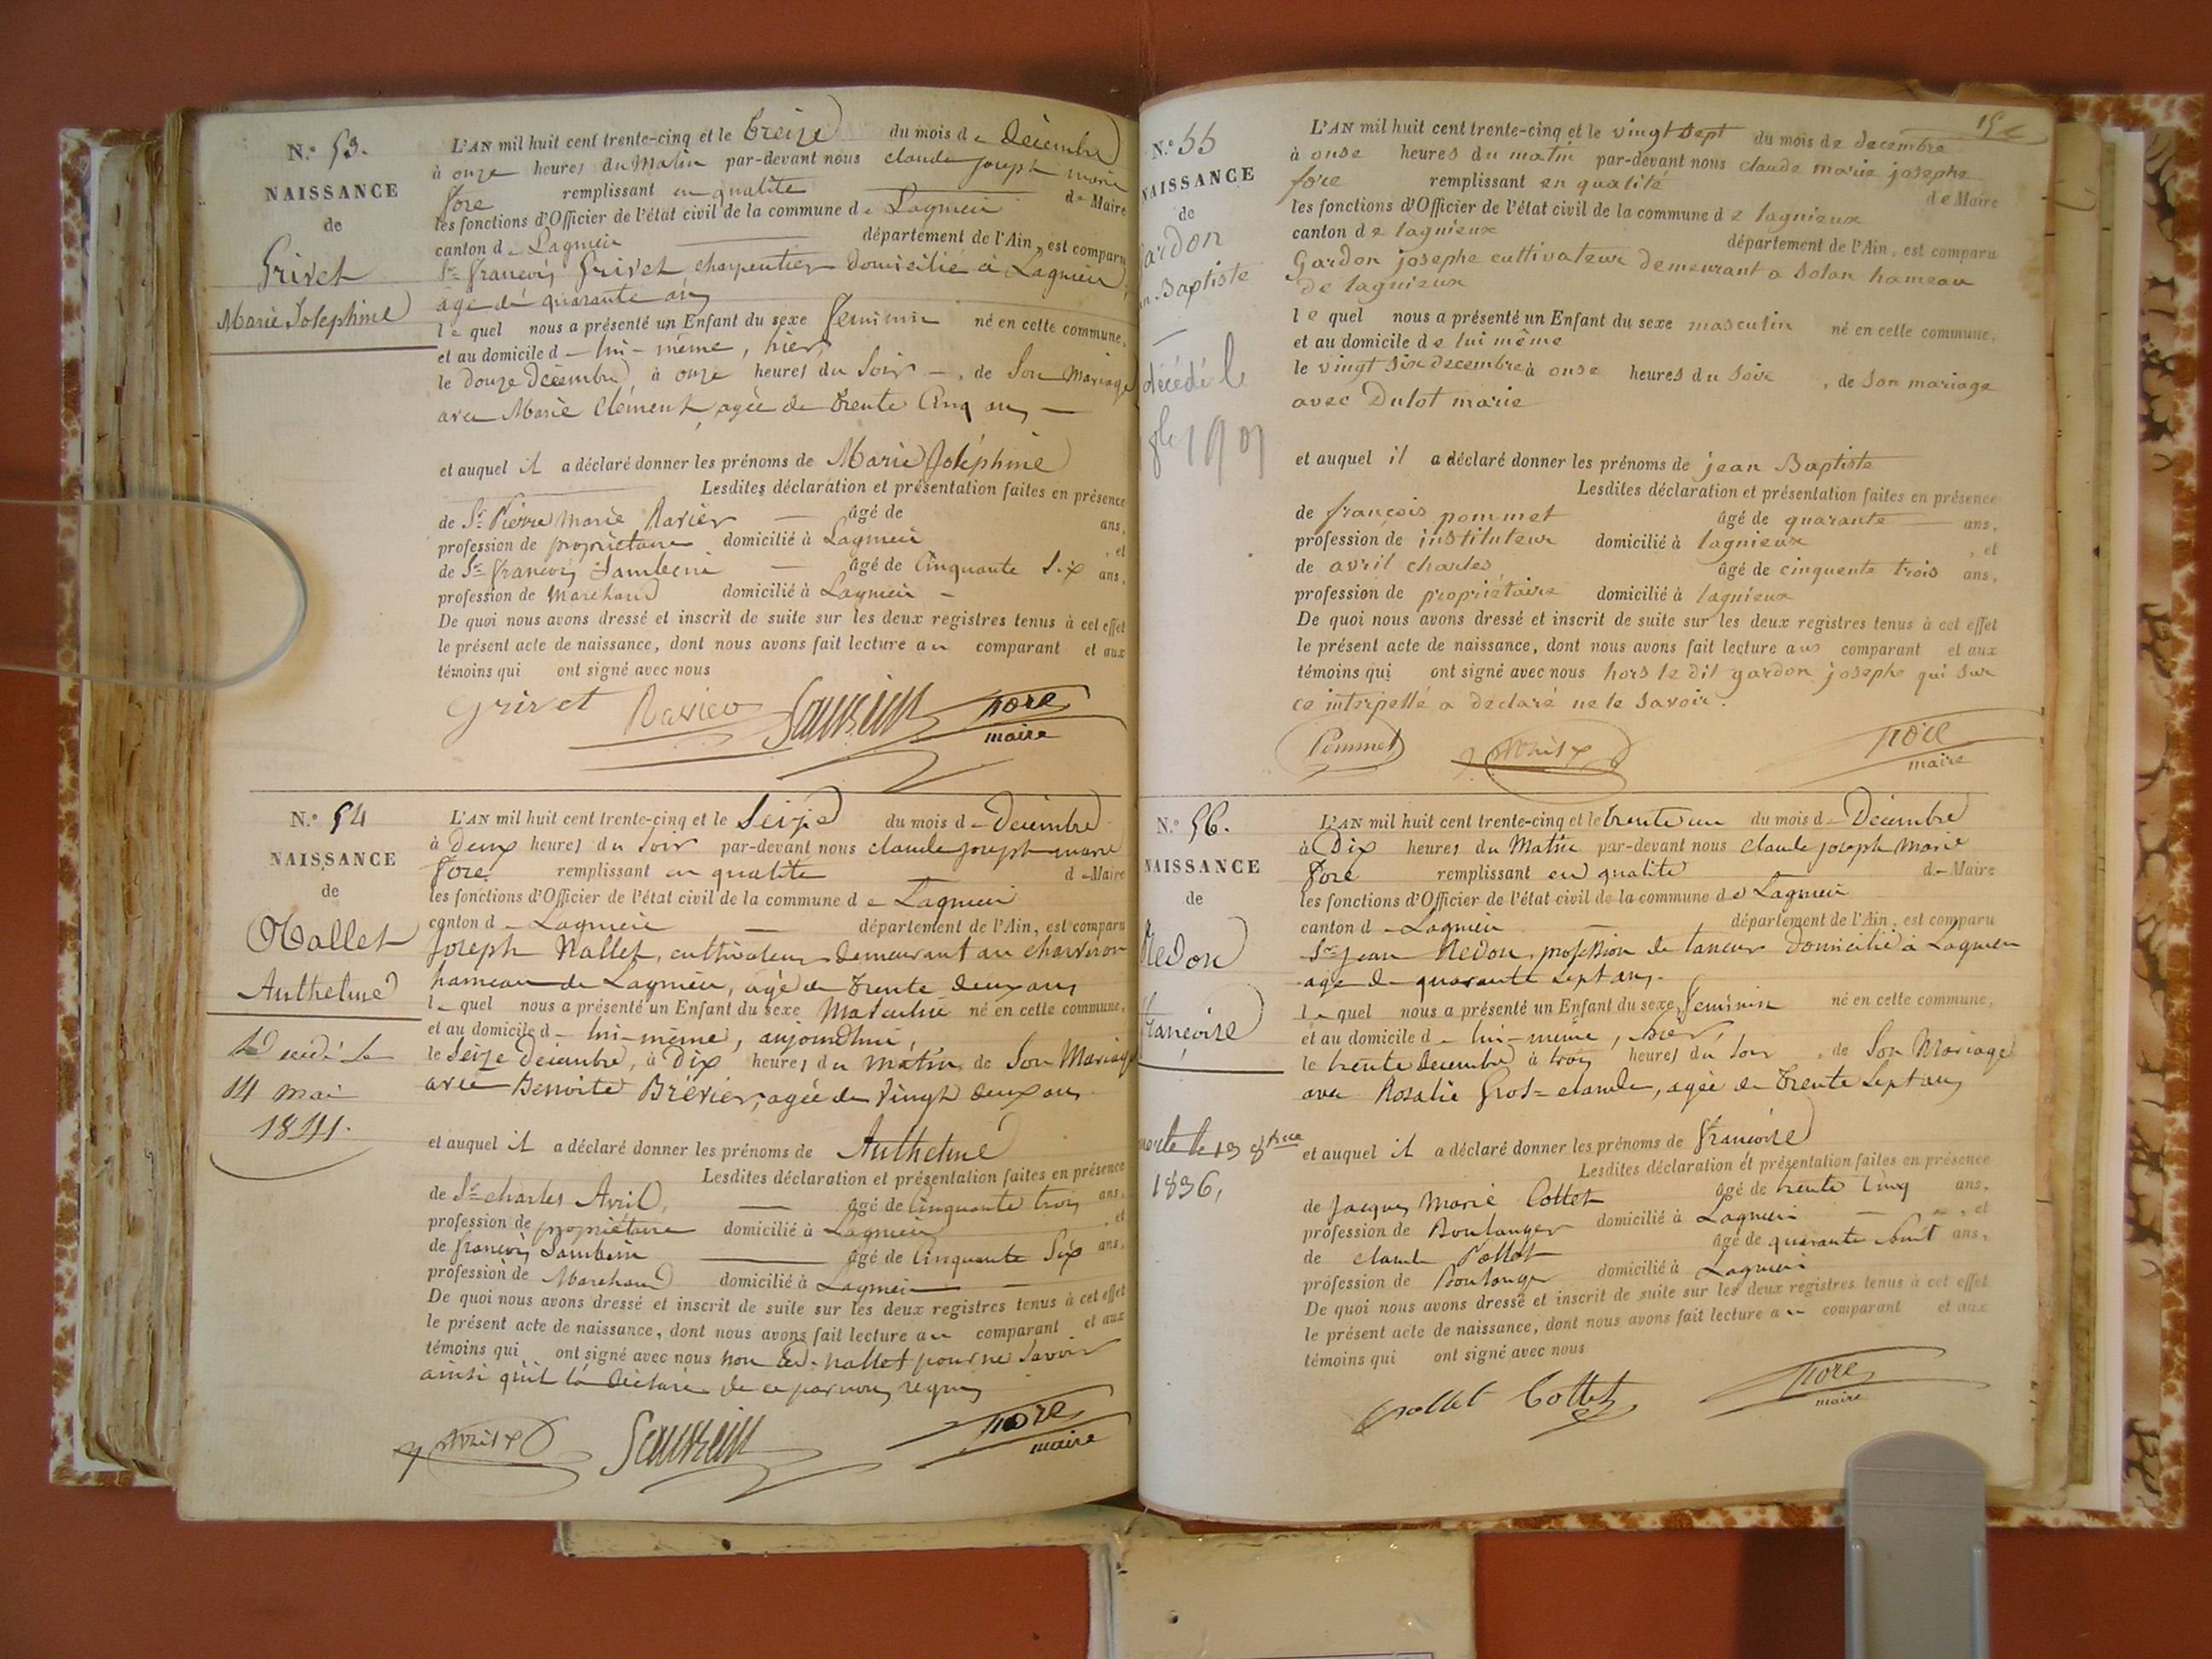 N.° 53.
NAISSANCE
de
Grivet
Marie Josephine
L'AN mil huit cent trente-cinq et le treize du mois de Décembre
à onze heures du Matin par-devant nous claude joseph marie
fore remplissant en qualité de Maire
les fonctions d'Officier de l'état civil de la commune de Lagnieu
canton de Lagnieu département de l'Ain, est comparu
Sr. françois Grivet charpentier domicilié à Lagnieu,
agé de quarante ans
le quel nous a présenté un Enfant du sexe feminin né en cette commune,
et au domicile de lui-même, hier,
le douze décembre, à onze heures du Soir, de Son Mariage
avec Marie Clément, agée de trente Cinq ans
et auquel il a déclaré donner les prénoms de Marie Joséphine
Lesdites déclaration et présentation faites en présence
de Sr. Pierre Marie Ravier âgé de ans,
profession de propriétaire domicilié à Lagnieu , et
de Sr. françois âgé de Cinquante Six ans,
profession de Marchand domicilié à Lagnieu
De quoi nous avons dressé et inscrit de suite sur les deux registres tenus à cet effet
le présent acte de naissance, dont nous avons fait lecture au comparant et aux
témoins qui ont signé avec nous
Grivet Ravier fore
maire
N.° 54
NAISSANCE
de
Nallet
Anthelme
Décédé le
14 mai
1841.
L'AN mil huit cent trente-cinq et le Seize du mois de Décembre
à Deux heures du Soir par-devant nous claude joseph marie
fore remplissant en qualité de Maire
les fonctions d'Officier de l'état civil de la commune de Lagnieu
canton de Lagnieu département de l'Ain, est comparu
Joseph Nallet, cultivateur demeurant au charveron
hameau de Lagnieu, agé de trente deux ans
le quel nous a présenté un Enfant du sexe Masculin né en cette commune,
et au domicile de lui-même, aujourdhui,
le Seize décembre, à Dix heures du matin, de Son Mariage
avec Benoite Brévier, agée de Vingt deux ans
et auquel il a déclaré donner les prénoms de Anthelme
Lesdites déclaration et présentation faites en présence
de Sr. charles Avril, âgé de Cinquante trois ans,
profession de propriétaire domicilié à Lagnieu , et
de françois âgé de Cinquante Six ans,
profession de Marchand domicilié à Lagnieu
De quoi nous avons dressé et inscrit de suite sur les deux registres tenus à cet effet
le présent acte de naissance, dont nous avons fait lecture au comparant et aux
témoins qui ont signé avec nous non led. nallet pour ne Savoir
ainsi qu'il l'a déclaré de ce par nous requis
Avril fore
maire
N.° 55
NAISSANCE
de
ardon
Baptiste
décédé le
L'AN mil huit cent trente-cinq et le vingt sept du mois de decembre
à onse heures du matin par-devant nous claude marie josephe
fore remplissant en qualité de Maire
les fonctions d'Officier de l'état civil de la commune de lagnieux
canton de lagnieux département de l'Ain, est comparu
Gardon josephe cultivateur demeurant a Solan hameau
de lagnieux
le quel nous a présenté un Enfant du sexe masculin né en cette commune,
et au domicile de lui même
le vingt six decembre à onse heures du soir , de son mariage
avec Dulot marie
et auquel il a déclaré donner les prénoms de jean Baptiste
Lesdites déclaration et présentation faites en présence
de françois pommet âgé de quarante ans,
profession de instituteur domicilié à lagnieux , et
de avril charles âgé de cinquente trois ans,
profession de propriétaire domicilié à lagnieux
De quoi nous avons dressé et inscrit de suite sur les deux registres tenus à cet effet
le présent acte de naissance, dont nous avons fait lecture aus comparant et aux
témoins qui ont signé avec nous hors le dit gardon josephe qui sur
ce interpellé a declaré ne le savoir.
Pommet Avril fore
maire
N.° 56.
NAISSANCE
de
Nedon
françoise
morte le 13 8bre
1836,
L'AN mil huit cent trente-cinq et le trente un du mois de Décembre
à Dix heures du Matin par-devant nous claude joseph Marie
fore remplissant en qualité de Maire
les fonctions d'Officier de l'état civil de la commune de Lagnieu
canton de Lagnieu département de l'Ain, est comparu
Sr. jean Nedon, profession de taneur domicilié à Lagnieu
agé de quarante sept ans.
le quel nous a présenté un Enfant du sexe feminin né en cette commune,
et au domicile de lui-même, hier,
le trente decembre à trois heures du soir , de Son Mariage
avec Rosalie Gros=claude, agée de trente Sept ans
et auquel il a déclaré donner les prénoms de françoise
Lesdites déclaration et présentation faites en présence
de Jacques Marie Cottet âgé de trente Cinq ans,
profession de Boulanger domicilié à Lagnieu , et
de claude âgé de quarante huit ans,
profession de Boulanger domicilié à Lagnieu
De quoi nous avons dressé et inscrit de suite sur les deux registres tenus à cet effet
le présent acte de naissance, dont nous avons fait lecture au comparant et aux
témoins qui ont signé avec nous
Cottet fore
maire